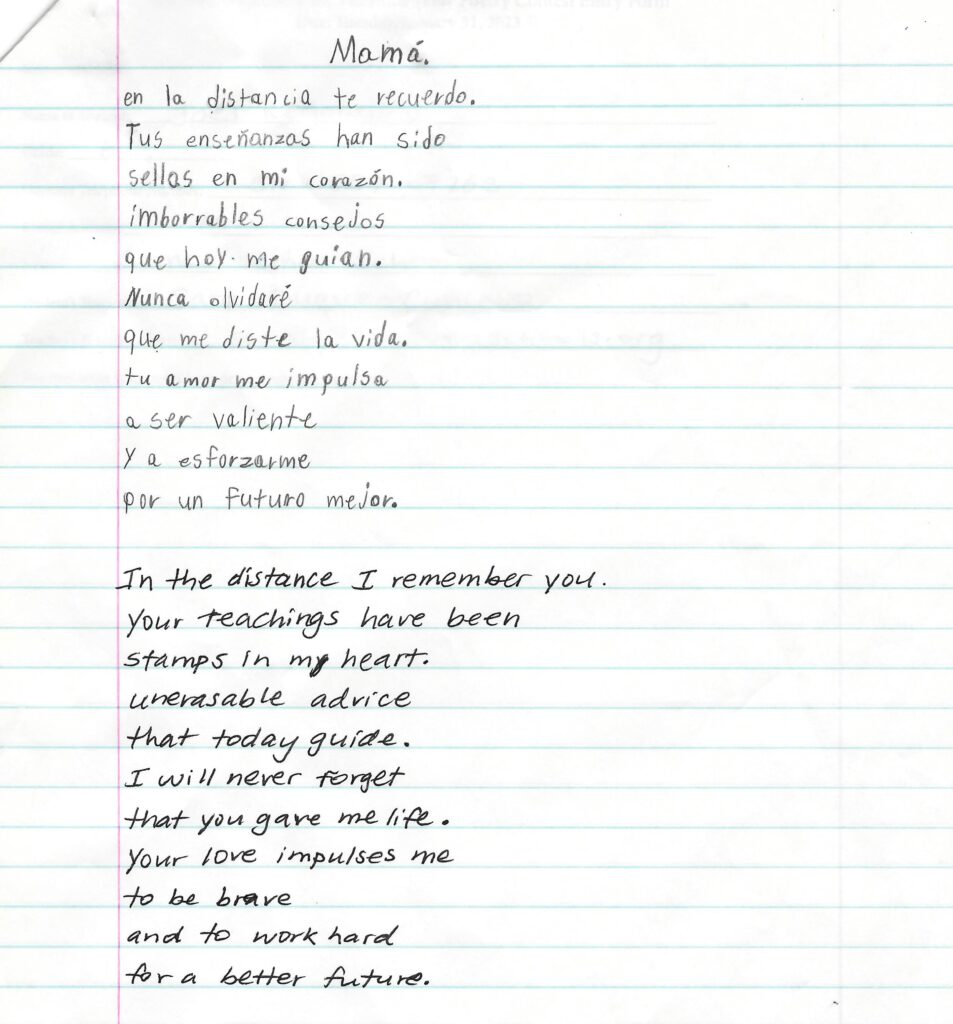 Mamá.
en la distancia te recuerdo.
Tus enseñanzas han sido
sellos en mi corazón.
imborrables consejos
que hoy me guian.
Nunca olvidaré
que me diste la vida.
tu amor me impulsa
a ser valiente
y a esforzarme
por un futuro mejor.
In the distance I remember you.
your teachings have been
stamps in my heart.
unerasable advice
that today guide.
I will never forget
that you gave me life.
your love impulses me
to be brave
and to work hard
for a better future.